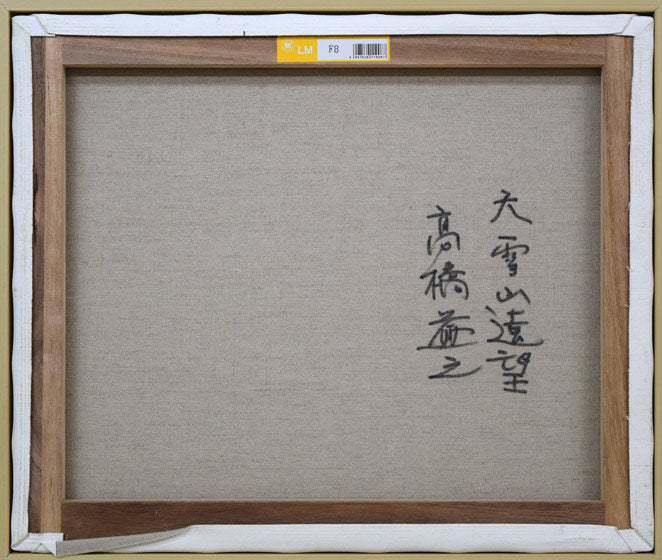 LM F8
大雪山遠望
高橋益之